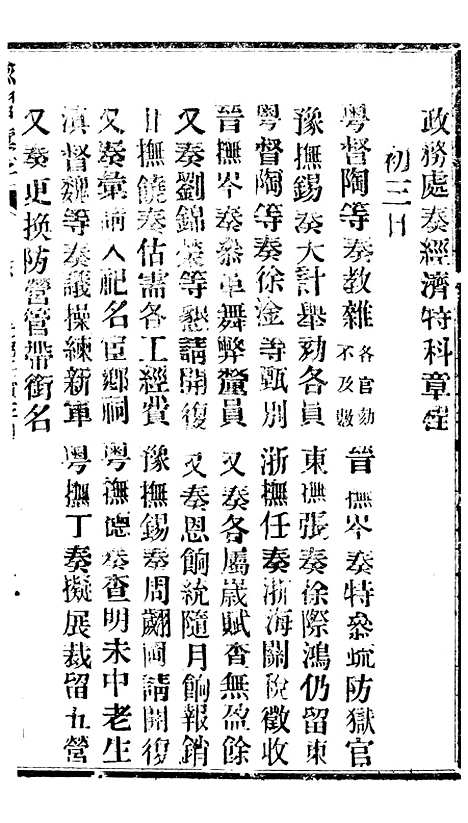 政務處奏經濟特科章程
初三日
粵督陶等奏教雜各官劾不及數
晉撫岑奏特參疏防獄官
豫撫錫奏大計舉劾各員
東撫張奏徐際鴻仍留東
粵督陶等奏徐淦等甄別
浙撫任奏浙海關稅徵收
晉撫岑奏參革舞弊釐員
又奏各屬歲賦查無盈餘
又奏劉錦棠等懇請開復
又奏恩餉統隨月餉報銷
甘撫饒奏估需各工經費
豫撫錫奏周翻岡請開復
又奏彙請入祀名宦鄉祠
粵撫德奏查明未中老生
滇督魏等奏議操練新軍
粵撫丁奏擬展裁留五營
又奏更換防營管帶銜名